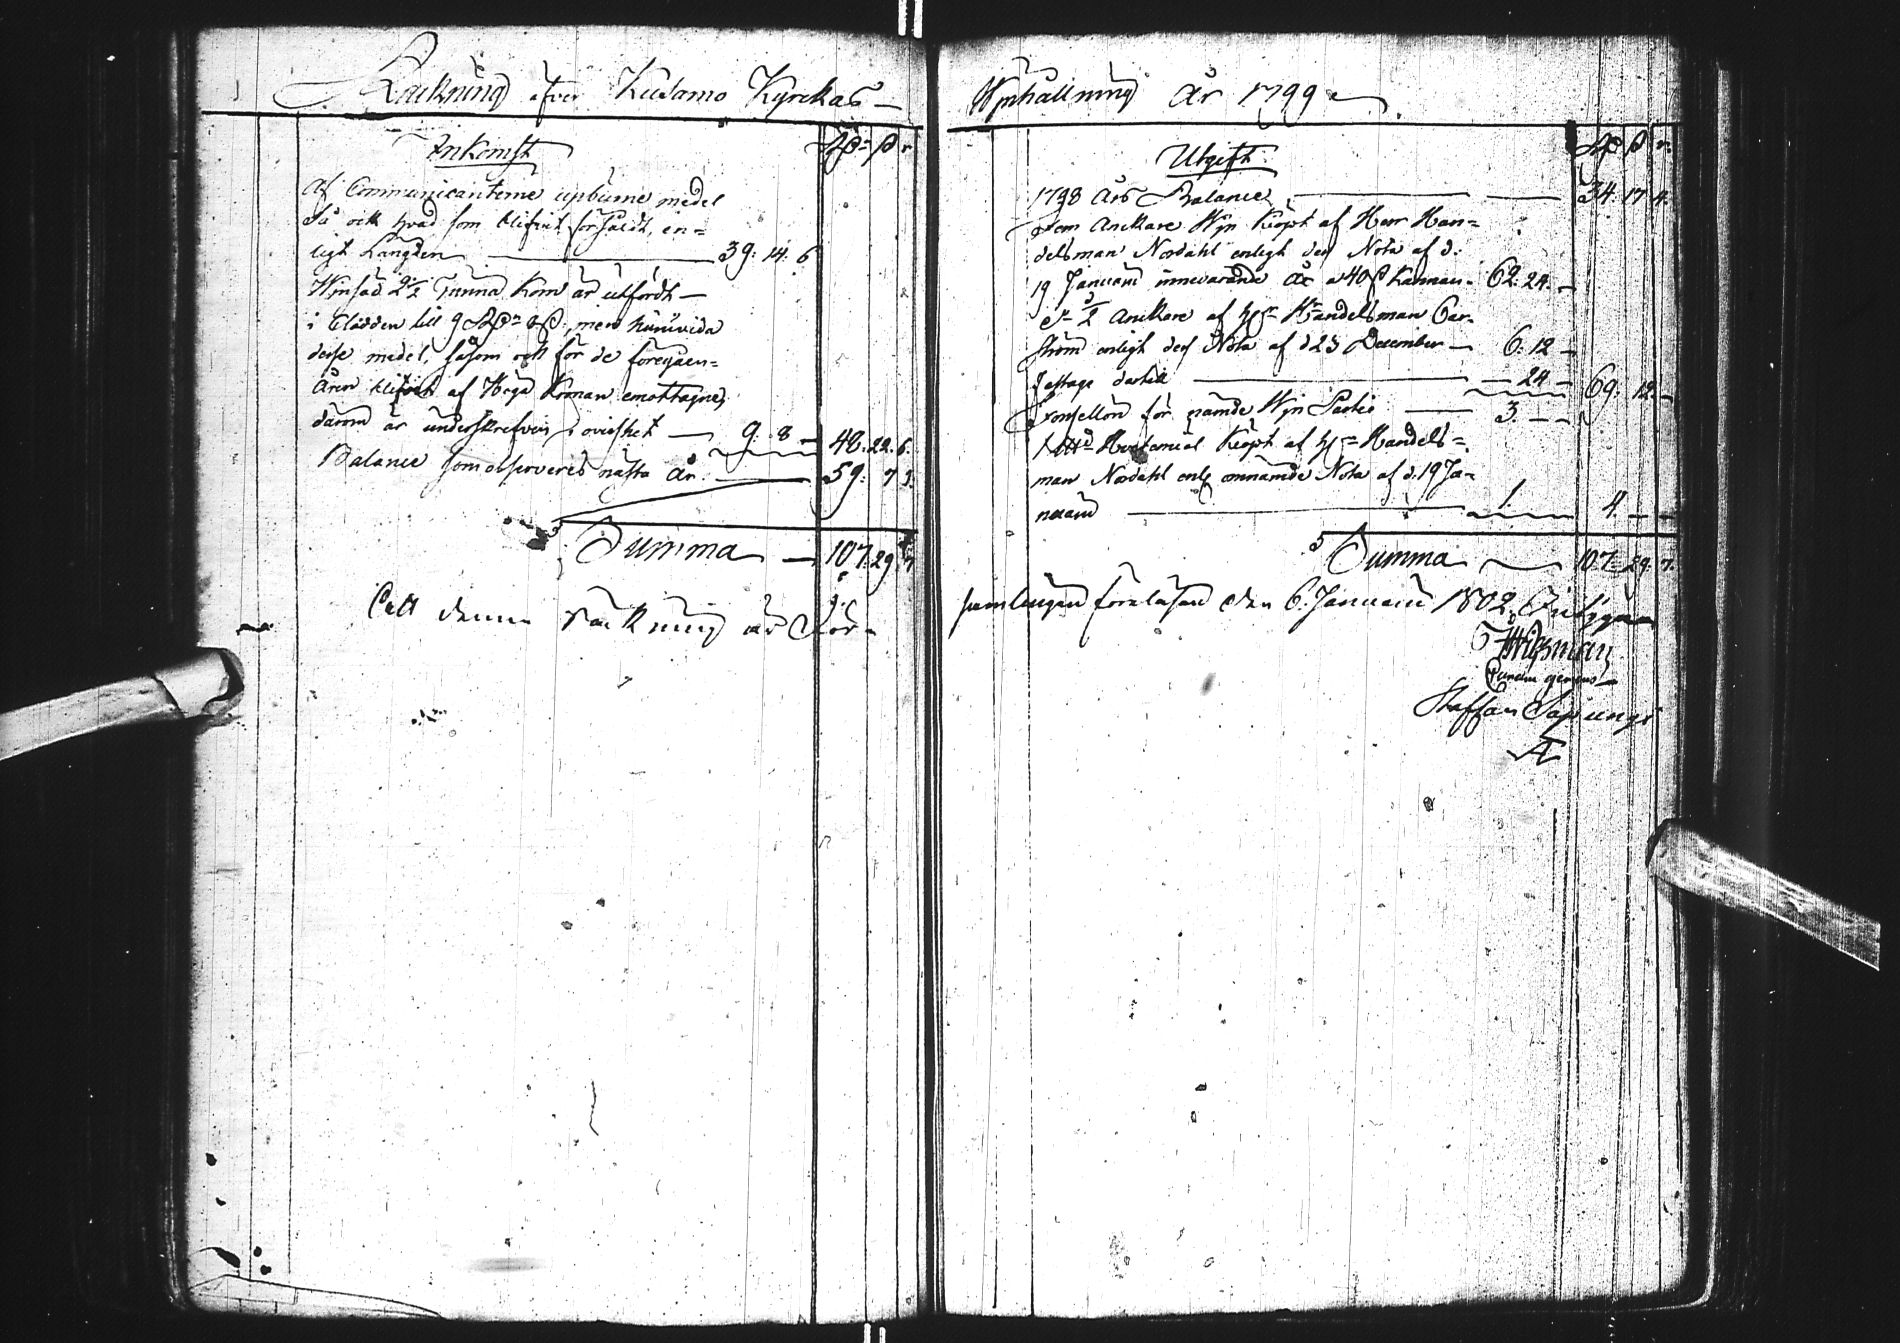 Räkning öfver Kusamo Kyrckas
Inkomst
Af Communicanterne upburne medel
Så ock hvad som blifvit försåldt, en=
ligt Längden 39: 14. 6
Winsäd 2 1/2 Tunna Korn är utfördt
i Längden till 9 Rdr 8 ß: men huruvida
desse medel, såsom ock för de föregåen=
åren blifvit af Höga Kronan emottagne,
därom är underskrefven i ovisshet 9. 8 48. 22. 6.
Balance som observeres nästa År 59: 7 1.
Summa 107. 29 7
Att denna Räkning är för=
Wjnhållning År 1799
Utgift
1798 Års Balance 34. 17 4.
Fem Anckare Wjn kiöpt af Herr Han=
delsman Nordahl enligt des Nota af d.
19 Januarii innevarande År a 40 ß Kannan 62. 24.
Et 1/2 Anckare af Hr Handelsman Car=
ström enligt des Nota af d 23 December 6: 12
Fastage dertill 24 69: 12.
Forsellön för nämde Wjn Partie 3.
Kiöpt af Hr Handels=
man Nordahl enl. omnämde Nota af d. 19 Ja=
nuarii 1. 4.
Summa 107. 29. 7.
samlingen föreläsen den 6. Januarii 1802. Betygar
Staffan